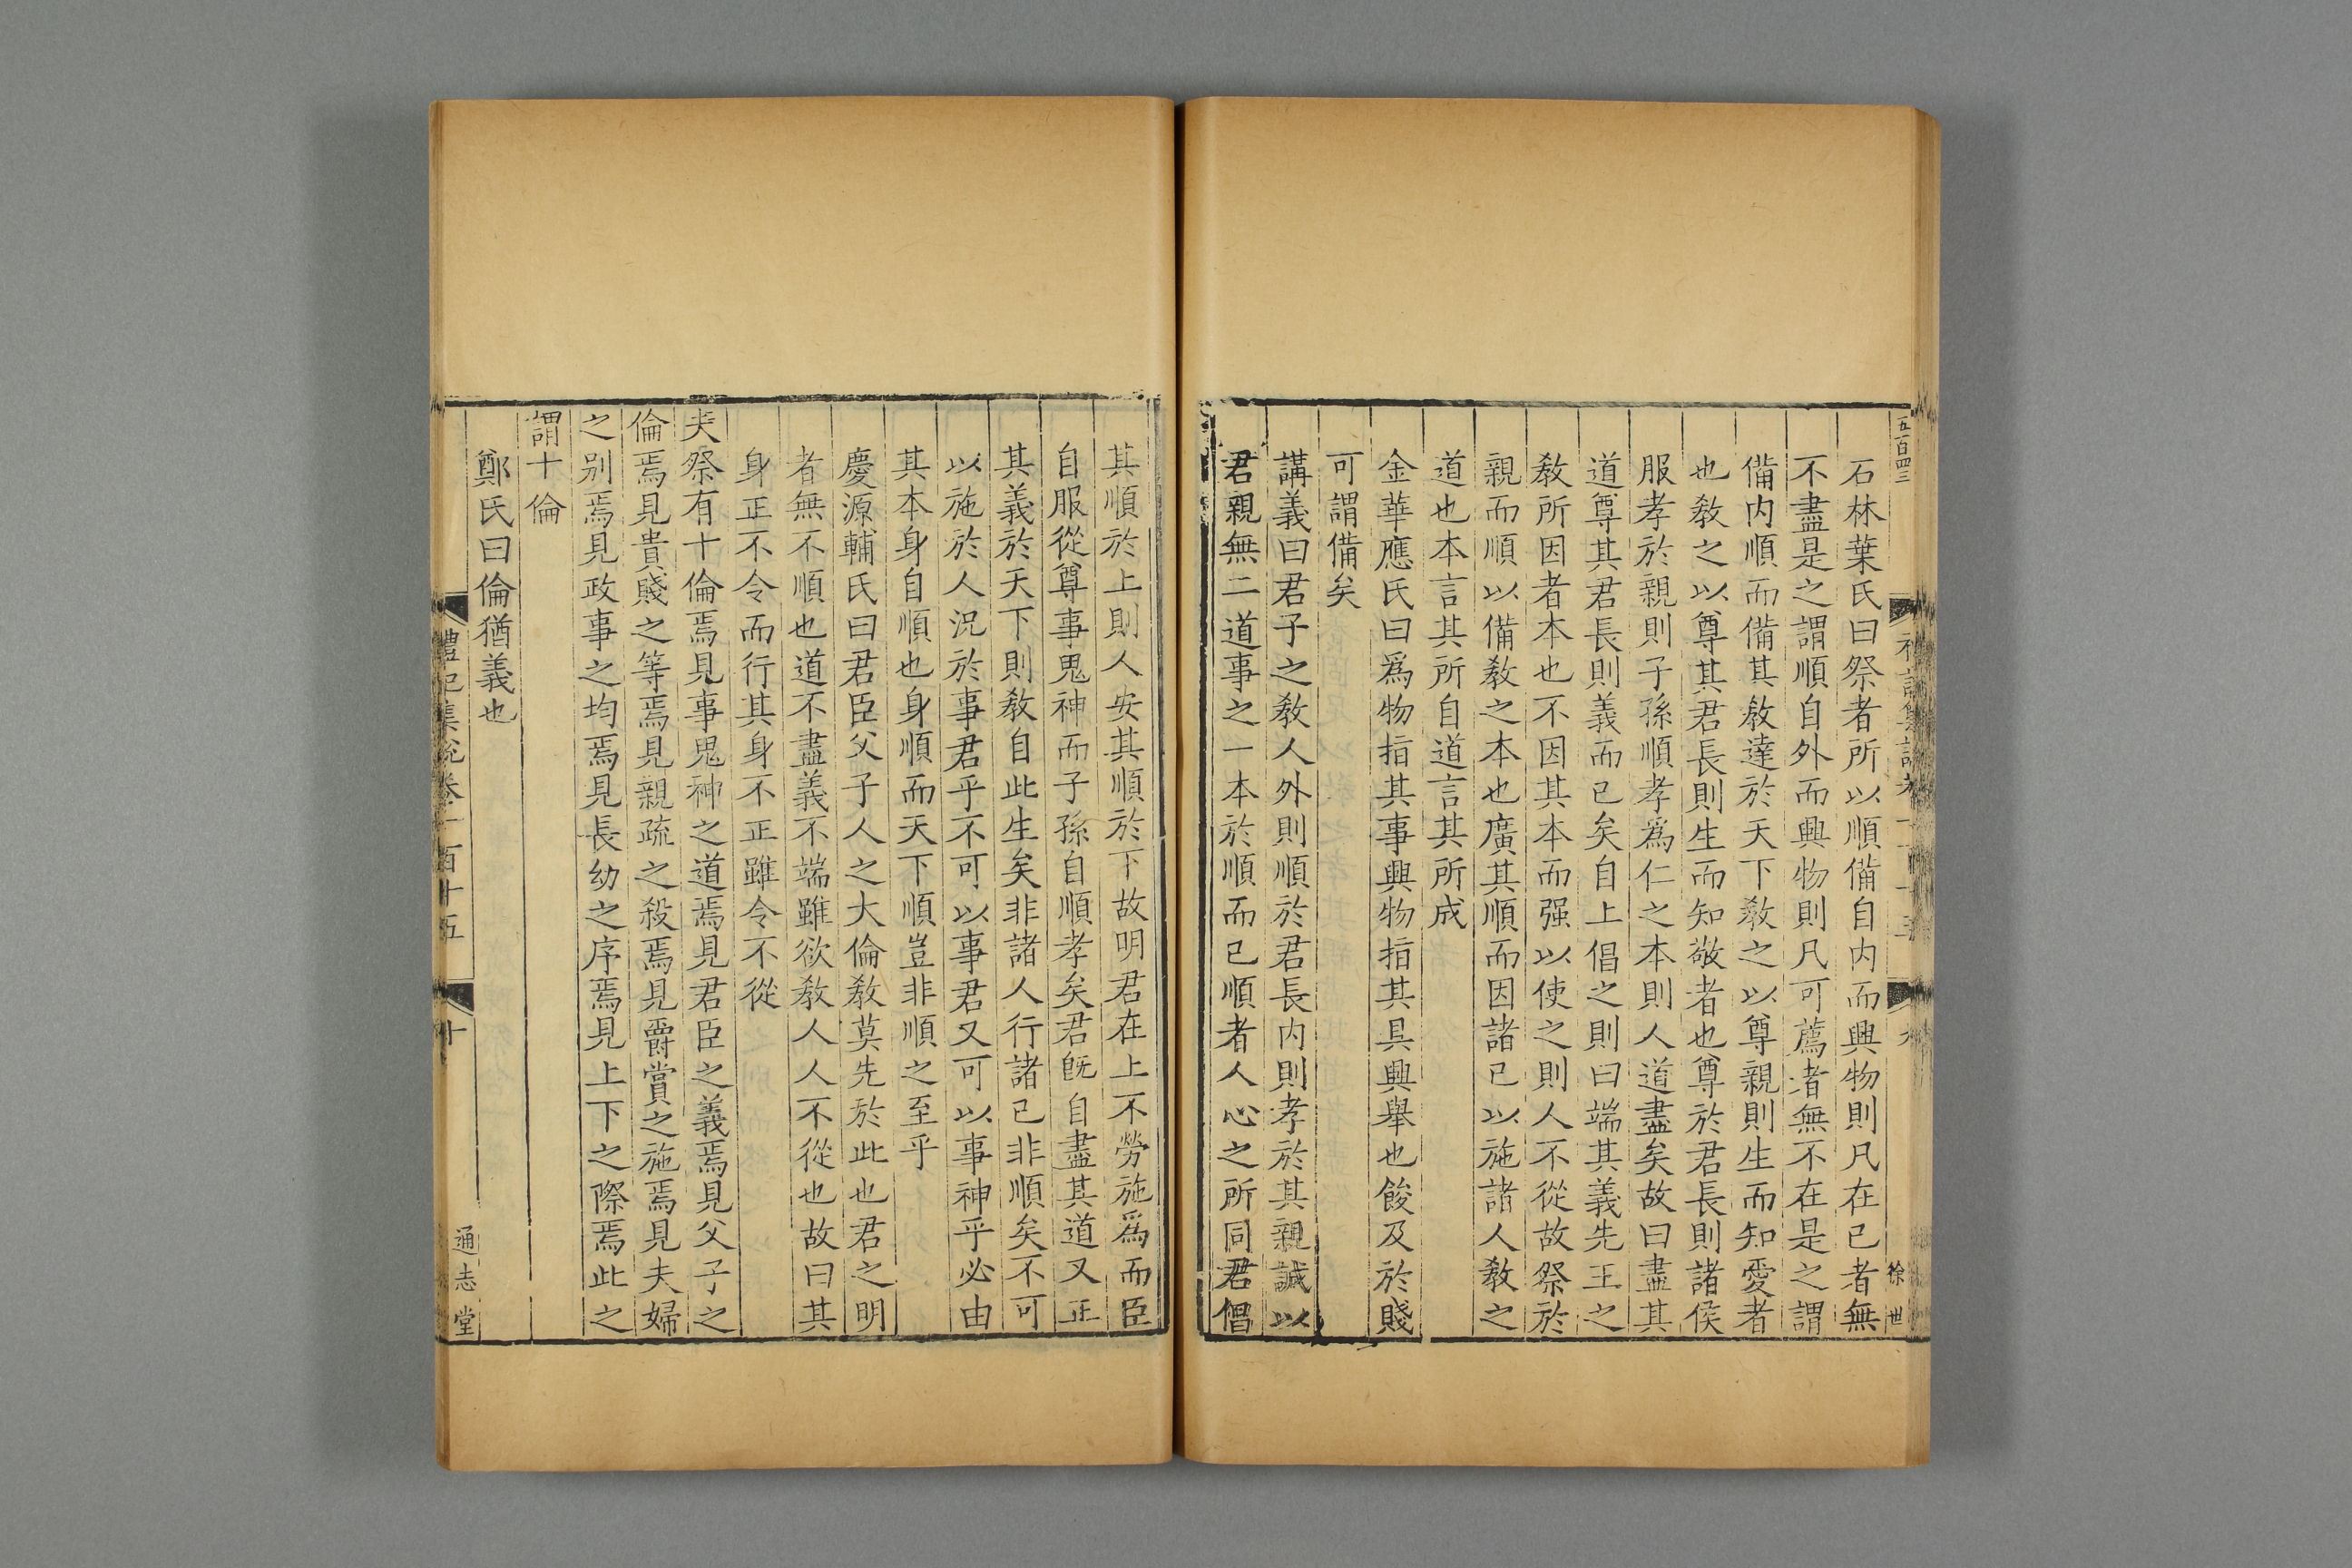 五百四三
石林葉氏曰祭者所以順備自内而興物則凡在己者無
不盡是之謂順自外而興物則凡可薦者無不在是之謂
備内順而備其敎達於天下敎之以尊親則生而知愛者
也敎之以尊其君長則生而知敬者也尊於君長則諸侯
服孝於親則子孫順孝爲仁之本則人道盡矣故曰盡其
道尊其君長則義而已矣自上倡之則曰端其義先王之
敎所因者本也不因其本而强以使之則人不從故祭於
親而順以備敎之本也廣其順而因諸己以施諸人敎之
道也本言其所自道言其所成
金華應氏曰爲物指其事興物指其具興舉也餕及於賤
可謂備矣
講義曰君子之敎人外則順於君長内則孝於其親誠以
君親無二道事之一本於順而已順者人心之所同君倡
徐世
其順於上則人安其順於下故明君在上不勞施爲而臣
自服從尊事鬼神而子孫自順孝矣君旣自盡其道又正
其義於天下則敎自此生矣非諸人行諸己非順矣不可
以施於人況於事君乎不可以事君又可以事神乎必由
其本身自順也身順而天下順豈非順之至乎
慶源輔氏曰君臣父子人之大倫敎莫先於此也君之明
者無不順也道不盡義不端雖欲敎人人不從也故曰其
身正不令而行其身不正雖令不從
夫祭有十倫焉見事鬼神之道焉見君臣之義焉見父子之
倫焉見貴賤之等焉見親疏之殺焉見爵賞之施焉見夫婦
之別焉見政事之均焉見長幼之序焉見上下之際焉此之
謂十倫
鄭氏曰倫猶義也
禮記集說卷一百十五
十
通志堂